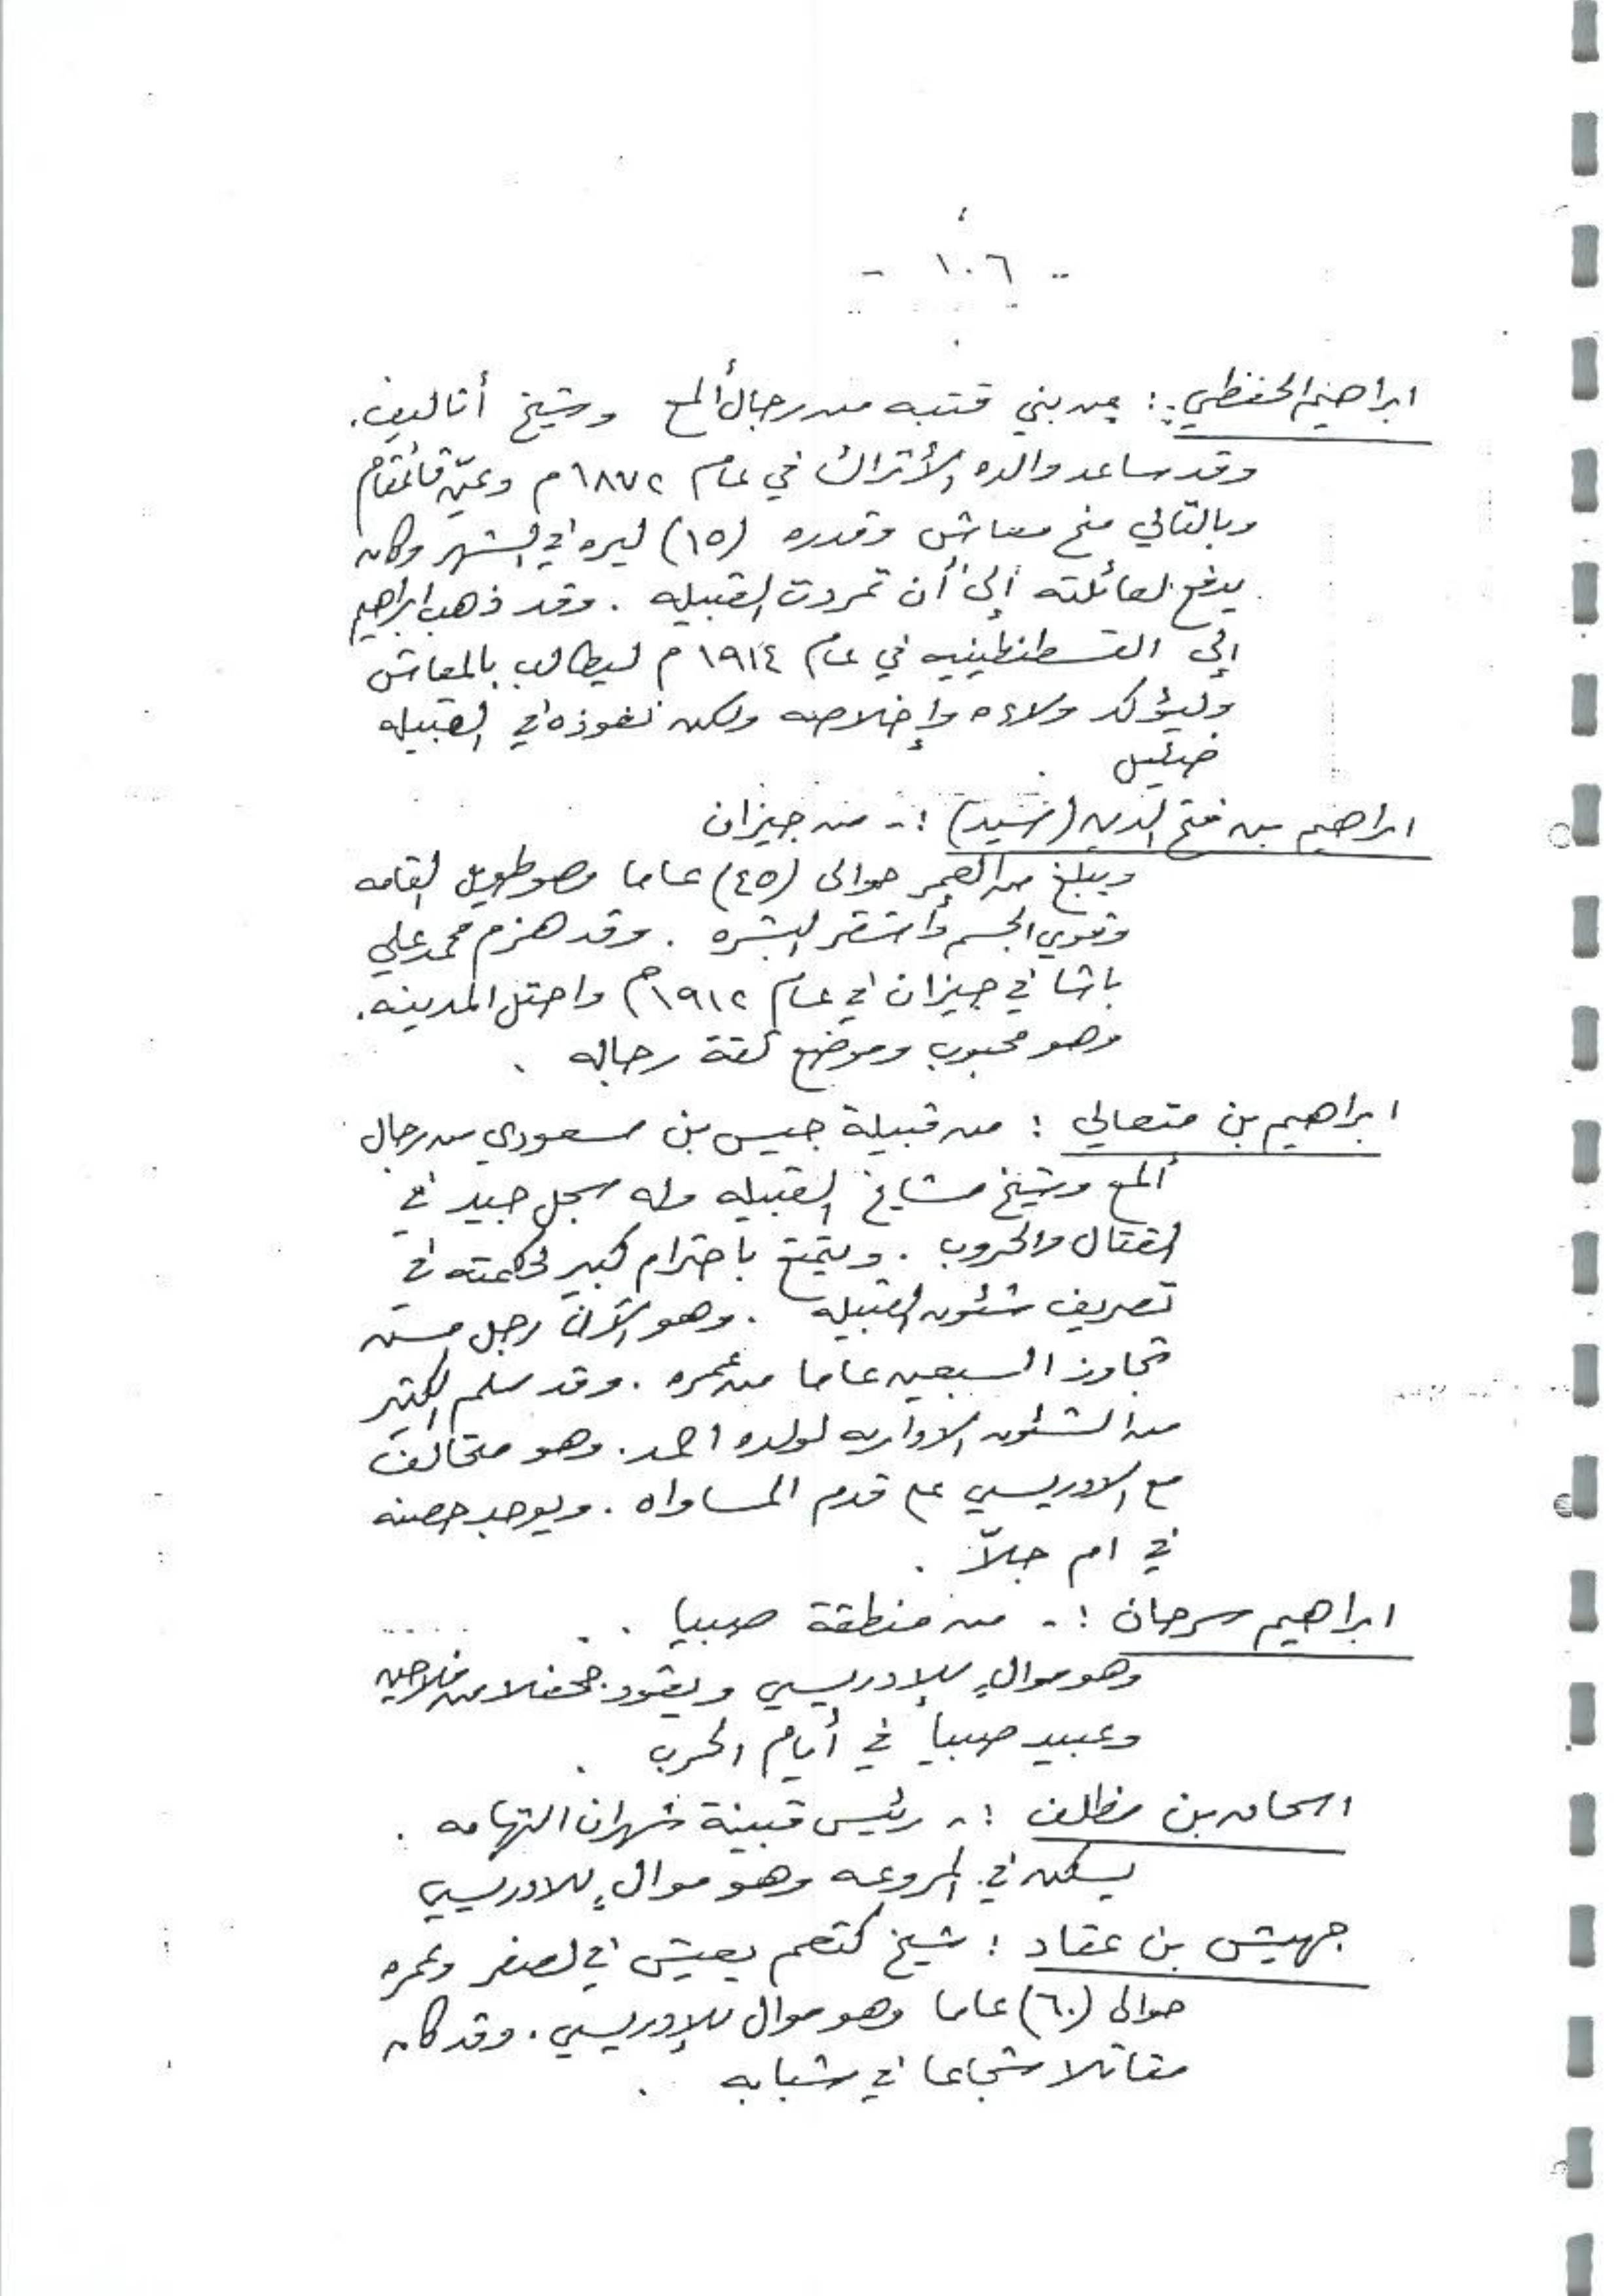 - ١٠٦ -
ابراهيم الحفظي : من بني قتبه من رجال ألمع وشيخ أتاليف .
وقد ساعد والده الأتراك في عام ١٨٧٢م وعيّن قائمقام
وبالتالي منح معاش وقدره (١٥) ليره في الشهر وكان
يدفع لعائلته إلى أن تمردت القبيله . وقد ذهب ابراهيم
إلى القسطنطينيه في عام ١٩١٤م ليطالب بالمعاش
وليؤكد ولاءه وإخلاصه ولكن نفوذه في القبيله
ضئيل .
ابراهيم بن فتح الدين (سيد) :- من جيزان
ويبلغ من العمر حوالى (٤٥) عاما وهو طويل القامه
وقوي الجسم وأشقر البشره . وقد هزم محمد علي
باشا في جيزان في عام ١٩١٢م واحتل المدينه .
وهو محبوب وموضع ثقة رجاله .
ابراهيم بن متعالي : من قبيلة جيس بن مسعودي من رجال
ألمع وشيخ مشايخ القبيله وله سجل جيد في
القتال والحروب . ويتمتع باحترام كبير لحكمته في
تصريف شئون القبيله . وهو الآن رجل مسن
تجاوز السبعين عاما من عمره . وقد سلم الكثير
من الشئون الاداريه لولده احمد . وهو متحالف
مع الادريسي على قدم المساواه . ويوجد حصنه
في ام جلاّ .
ابراهيم سرحان :- من منطقة صبيا .
وهو موالٍ للإدريسي ويقود جحفلا من فلاحين
وعبيد صبيا في أيام الحرب .
اسحاق بن مظلف :- رئيس قبيلة شهران التهامه .
يسكن في المروعه وهو موالٍ للادريسي
جهيش بن عقاد : شيخ كتعم يعيش في لصفر وعمره
حوالى (٦٠) عاما وهو موال للإدريسي . وقد كان
مقاتلا شجاعا في شبابه .